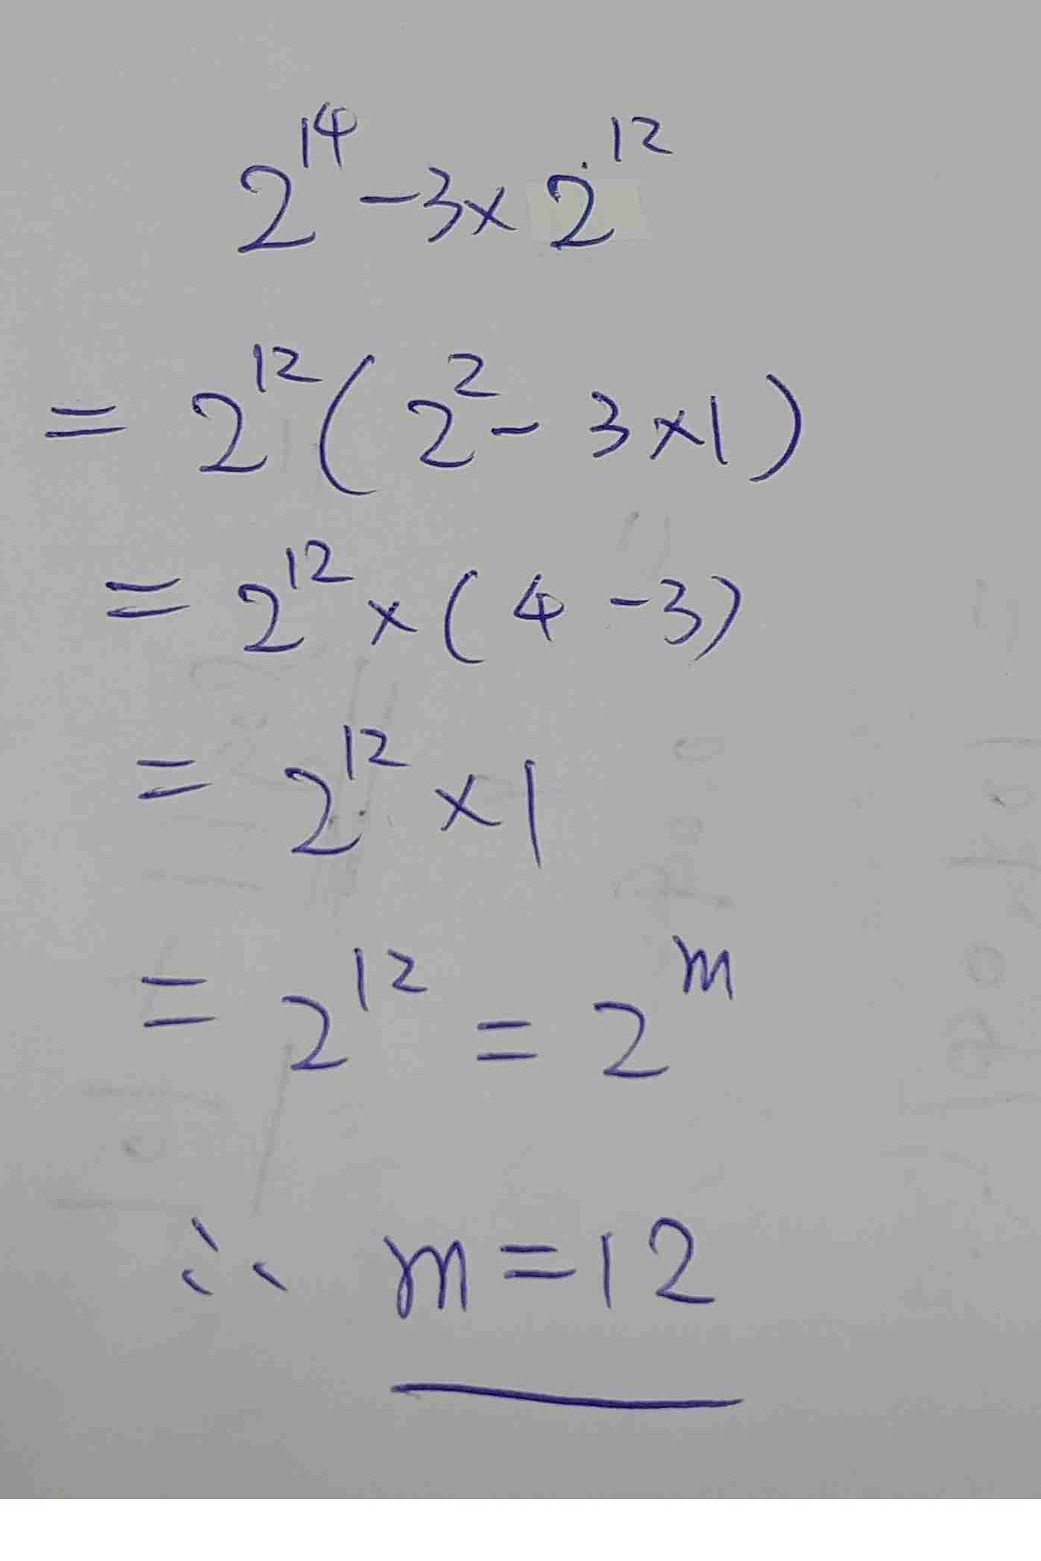 2¹⁴ - 3 × 2¹²
= 2¹² ( 2² - 3 × 1 )
= 2¹² × ( 4 - 3 )
= 2¹² × 1
= 2¹² = 2ᵐ
∴ m = 12